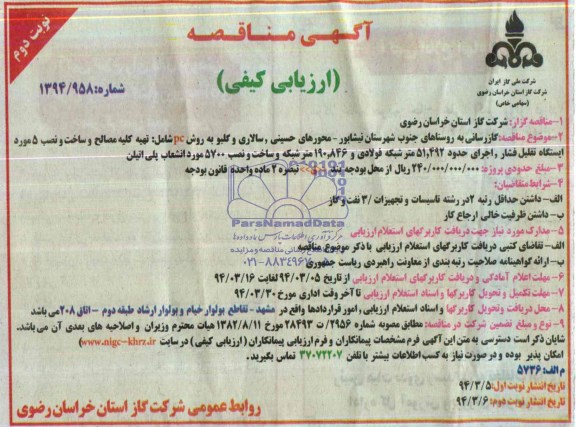 نوبت دوم
آگهی مناقصه
(ارزیابی کیفی)
شماره: ۱۳۹۴/۹۵۸
شرکت ملی گاز ایران
شرکت گاز استان خراسان رضوی
(سهامی خاص)
۱-مناقصه گزار: شرکت گاز استان خراسان رضوی
۲-موضوع مناقصه: گازرسانی به روستاهای جنوب شهرستان نیشابور - محورهای حسینی , سالاری و گلبو به روش pc شامل: تهیه کلیه مصالح و ساخت و نصب ۵ مورد
ایستگاه تقلیل فشار , اجرای حدود ۵۱,۴۹۲ متر شبکه فولادی و ۱۹۰,۸۴۶ متر شبکه و ساخت و نصب ۵۷۰۰ مورد انشعاب پلی اتیلن
۳- مبلغ حدودی پروژه: ۲۴۰/۰۰۰/۰۰۰/۰۰۰ ریال از محل بودجه تبصره ۲ ماده واحده قانون بودجه
۴- شرایط متقاضیان:
الف- داشتن حداقل رتبه ۲ در رشته تاسیسات و تجهیزات /۳ نفت و گاز
ب- داشتن ظرفیت خالی ارجاع کار
۵- مدارک مورد نیاز جهت دریافت کاربرگهای استعلام ارزیابی
الف- تقاضای کتبی دریافت کاربرگهای استعلام ارزیابی با ذکر موضوع مناقصه
ب- ارائه گواهینامه صلاحیت رتبه بندی از معاونت راهبردی ریاست جمهوری
۶- مهلت اعلام آمادگی و دریافت کاربرگهای استعلام ارزیابی از تاریخ ۹۴/۰۳/۰۵ لغایت ۹۴/۰۳/۱۶
۷- مهلت تکمیل و تحویل کاربرگها و اسناد استعلام ارزیابی تا آخر وقت اداری مورخ ۹۴/۰۳/۳۰
۸- محل دریافت و تحویل کاربرگها و اسناد استعلام ارزیابی , امور قراردادها واقع در مشهد- تقاطع بولوار خیام و بولوار ارشاد طبقه دوم - اتاق ۲۰۸ می باشد
۹- نوع و مبلغ تضمین شرکت در مناقصه: مطابق مصوبه شماره ۲۹۵۶/ت ۲۸۴۹۳ مورخ ۱۳۸۲/۸/۱۱ هیات محترم وزیران و اصلاحیه های بعدی آن می باشد.
شایان ذکر است دسترسی به متن این آگهی فرم مشخصات پیمانکاران و فرم ارزیابی پیمانکاران ( ارزیابی کیفی ) در سایت (www.nigc-khrz.ir)
امکان پذیر بوده و در صورت نیاز به کسب اطلاعات بیشتر با تلفن ۳۷۰۷۲۲۰۷ تماس بگیرید.
م الف: ۵۷۳۶
تاریخ انتشار نوبت اول: ۹۴/۳/۵
تاریخ انتشار نوبت دوم: ۹۴/۳/۶
روابط عمومی شرکت گاز استان خراسان رضوی
ParsNamadData
۰۲۱-۸۸۳۴۹۶۷۰